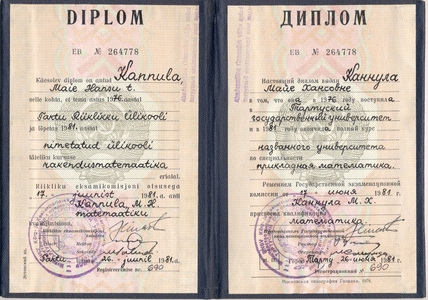 DIPLOM
EB № 264778
Käesolev diplom on antud Kannula,
Maie Hansu t.
selle kohta, et tema astus 1976. aastal
Tartu Riiklikku Ülikooli
ja lõpetas 1981. aastal
nimetatud ülikooli
täieliku kursuse
rakendusmatemaatika
erialal.
Riikliku eksamikomisjoni otsusega
17. juunist 1981. a. anti
Kannula, M. H.
matemaatiku
kvalifikatsioon.
Tartu, 26. juunil 1981. a.
Registreerimise nr. 690
ДИПЛОМ
ЕВ № 264778
Настоящий диплом выдан Каннула
Майе Хансовне
в том, что она в 1976 году поступила
в Тартуский
государственный университет
и в 1981 году окончила полный курс
названного университета
по специальности
прикладная математика.
Решением Государственной экзаменационной
комиссии от 17 июня 1981 г.
Каннула М. Х.
присвоена квалификация
математика
Город Тарту 26 июня 1981 г.
Регистрационный № 690
Московская типография Гознака. 1976.